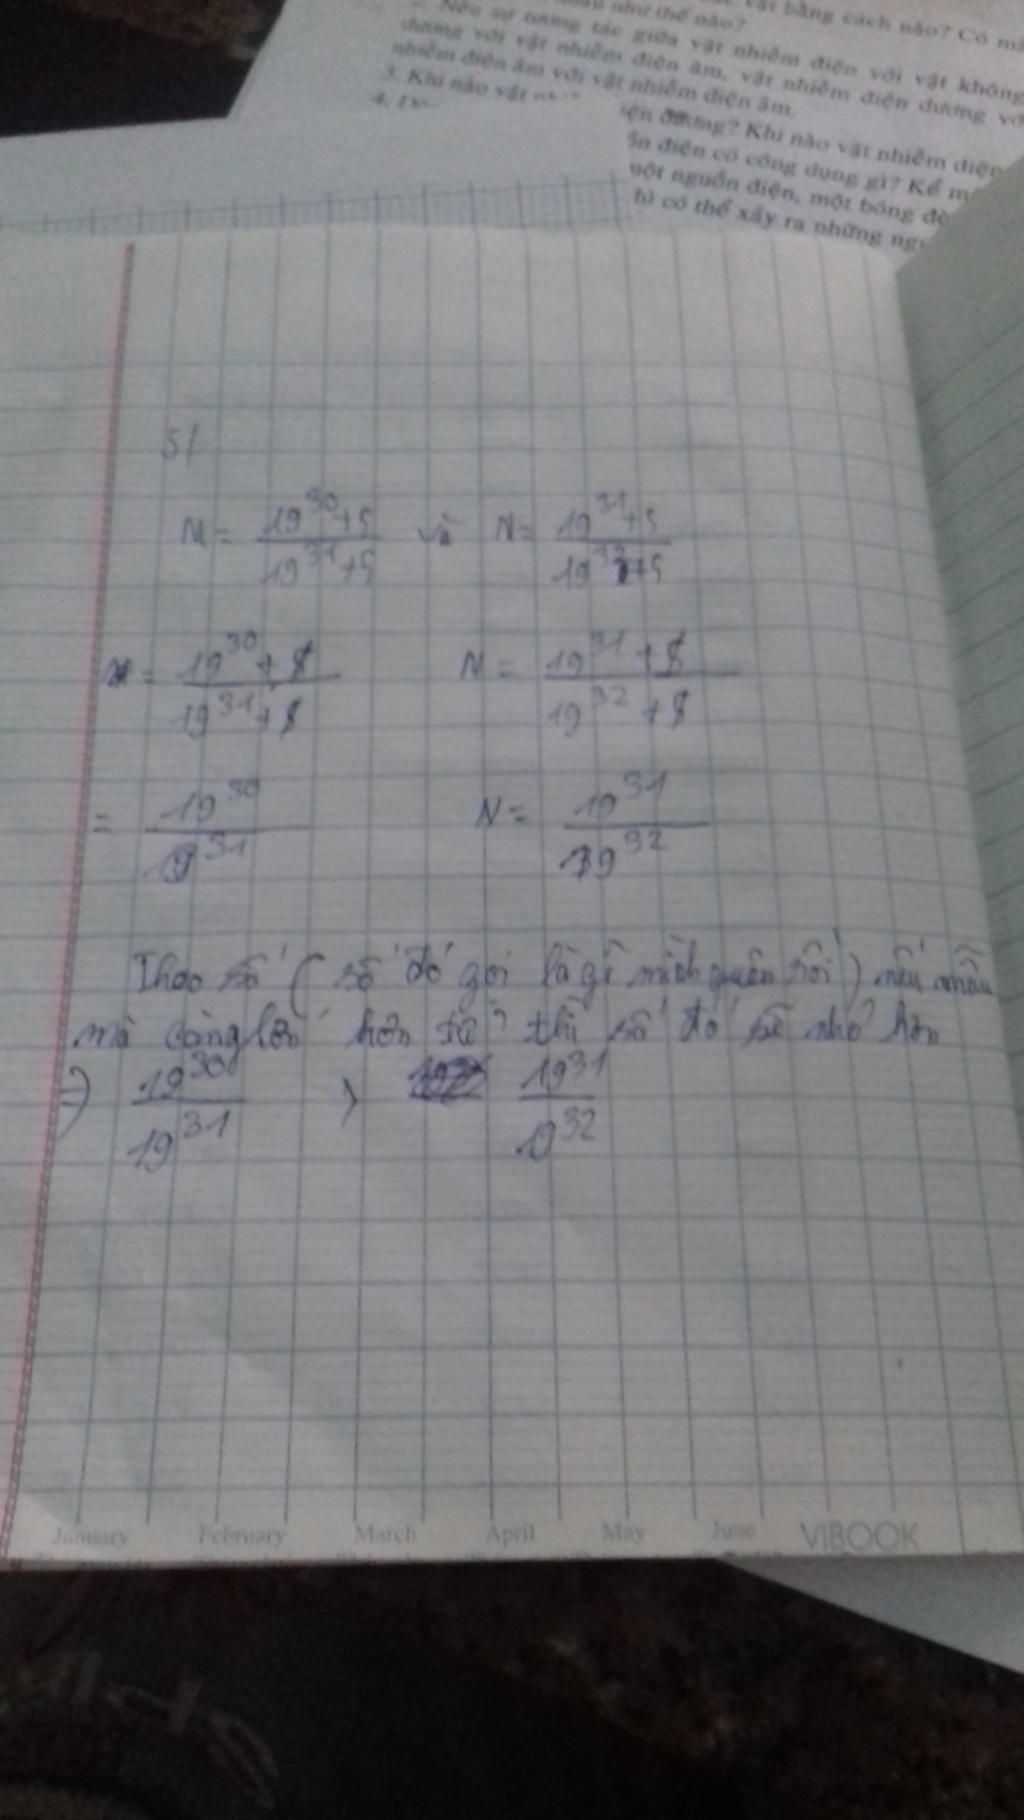 vật bằng cách nào? Có mấ
như thế nào?
Nêu sự tương tác giữa vật nhiễm điện với vật không
dương với vật nhiễm điện âm, vật nhiễm điện dương vớ
nhiễm điện âm với vật nhiễm điện âm.
3. Khi nào vật iện dương? Khi nào vật nhiễm điện
4. ồn điện có công dụng gì? Kể m
một nguồn điện, một bóng đè
hì có thể xảy ra những ng
5/
M = (19^30+5)/(19^31+5) và N = (19^31+5)/(19^32+5)
M = (19^30+5)/(19^31+5) N = (19^31+5)/(19^32+5)
= 19^30/19^31 N = 19^31/19^32
số (số đó gọi là gì mình quên rồi) nếu mẫu
mà càng lớn hơn tử thì số đó sẽ nhỏ hơn
=> 19^30/19^31 > 19^31/19^32
January February March April May June VIBOOK